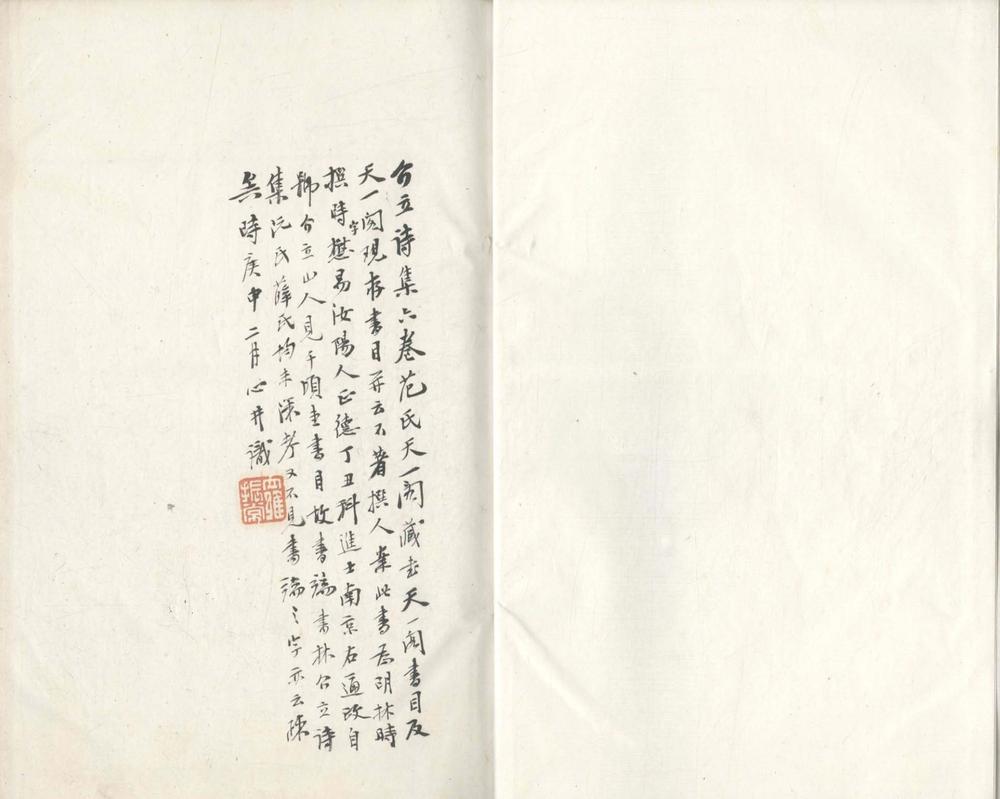 介立詩集六卷范氏天一閣藏書天一閣書目及
天一閣現存書目并云不著撰人案此書為明林時
撰時字懋易汝陽人正德丁丑科進士南京右通政自
號介立山人見千頃堂書目故書端書林介立詩
集阮氏薛氏均未深考又不見書端之字亦云疎
矣時庚申二月心井識
羅振常